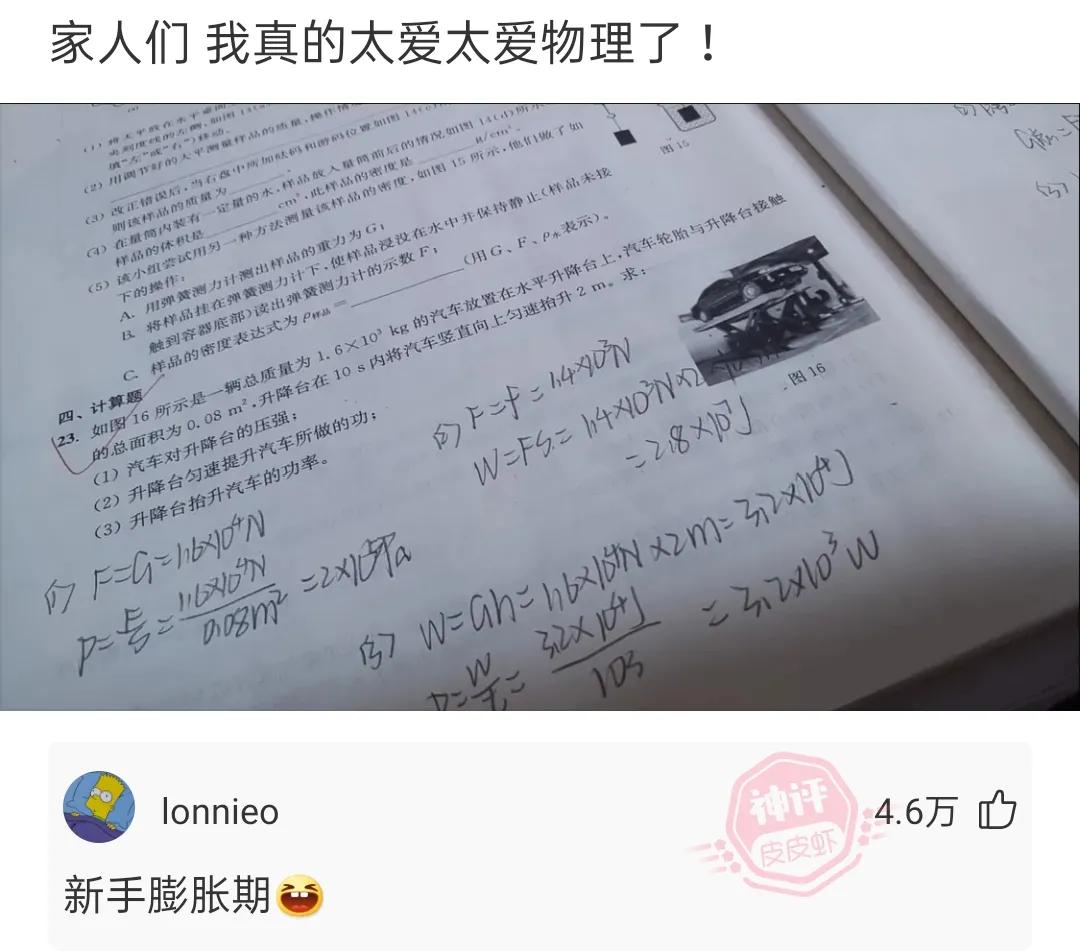 家人们 我真的太爱太爱物理了！
(1) 将天平放在水平桌面
填“左”或“右”)移动。
(2) 用调节好的天平测量样品的质量，操作情
(3) 改正错误后，当右盘中所加砝码和游码位置如图 14(c)所示
则该样品的质量为
g/cm³。
(4) 在量筒内装有一定量的水，样品放入量筒前后的情况如图 14(d)所示
样品的体积是 cm³，此样品的密度是
图 15
(5) 该小组尝试用另一种方法测量该样品的密度，如图 15 所示，他们做了如
下的操作：
A. 用弹簧测力计测出样品的重力为 G；
B. 将样品挂在弹簧测力计下，使样品浸没在水中并保持静止(样品未接
触到容器底部)读出弹簧测力计的示数 F；
C. 样品的密度表达式为 ρ样品 = (用 G、F、ρ水表示)。
四、计算题
23. 如图 16 所示是一辆总质量为 1.6×10³ kg 的汽车放置在水平升降台上，汽车轮胎与升降台接触
的总面积为 0.08 m²，升降台在 10 s 内将汽车竖直向上匀速抬升 2 m。求：
(1) 汽车对升降台的压强；
(2) 升降台匀速提升汽车所做的功；
(3) 升降台抬升汽车的功率。
图 16
F=f=1.4×10³N
W=FS=1.4×10³N×2
=2.8×10⁷J
(1) F=G=1.6×10⁴N
P=F/S=1.6×10⁴N/0.08m²=2×10⁵Pa
(3) W=Gh=1.6×10⁴N×2m=3.2×10⁴J
P=W/t=3.2×10⁴J/10s=3.2×10³W
lonnieo
神评
皮皮虾
4.6万
新手膨胀期😆